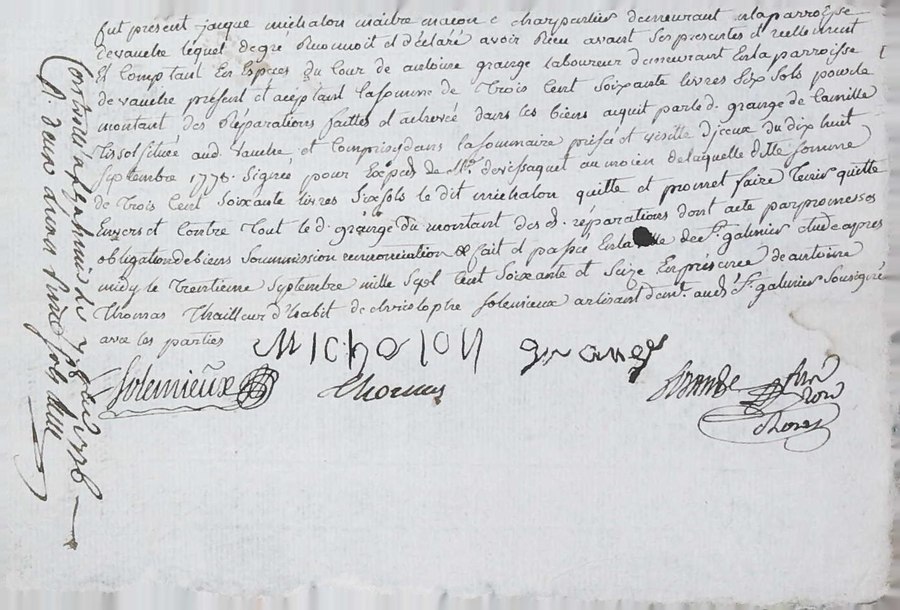 fut présent jacque michalon maitre macon & charpantier demeurant enla parroisse
devauche lequel degré Reconnoit et déclaré avoir Reçu avant ses presentes et réellement
Et Comptant En Espèces du Cour de antoine grange laboureur demeurant Enla parroisse
de vauche présent et acéptant la somme de Trois Cent soixante livres six sols pour le
montant des Réparations faittes et achevée dans les biens acquit par le d. grange de Camille
Tissot située aud. vauche, et Comprises dans la sommaire prisée et visitte d'iceux du dix huit
septembre 1776. Signée pour de m.e devissaguet au moien de laquelle ditte somme
de Trois Cent Soixante livres six sols le dit michalon quitte et promet faire Tenir quitte
Envers et Contre Tout le d. grange du montant des d. réparations dont acte par promesses
obligation de biens Soummission rennonciation & fait et passée Enla ville de s.t galmier Etude apres
midy le Trentieme Septembre mille Sept Cent Soixante et Seize En présence de antoine
Thomas Thailleur d'habit de christophe solemieux artisant dem.t aud. S.t galmier Sousigné
avec les parties
Michalon grange
Solemieux Thomas
Controllé a s.t galmier le 1776
R. deux livres sols